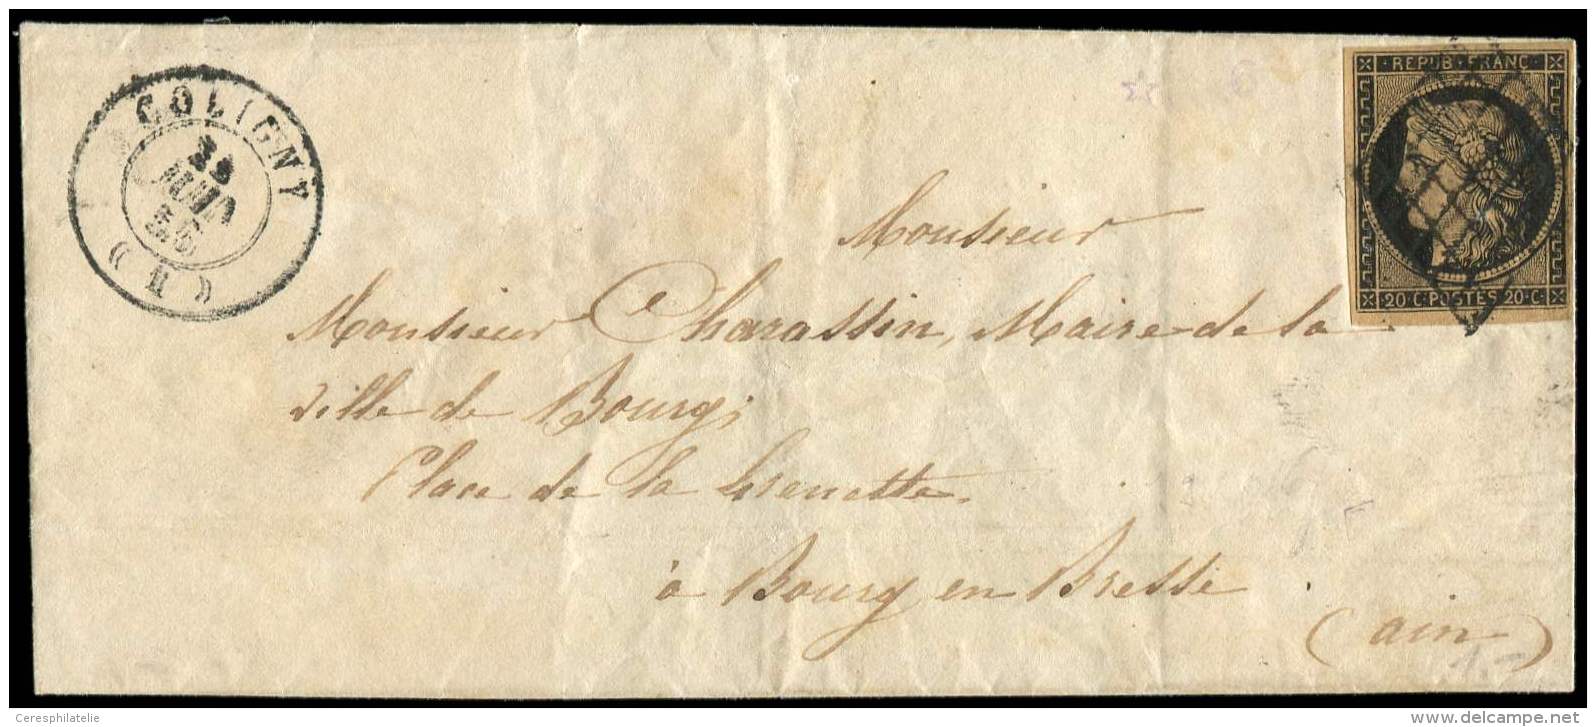 COLIGNY
JUIN
REPUB·FRANC·
20·C·POSTES 20·C·
Monsieur
Monsieur Charassin, Maire de la
ville de Bourg,
Place de la Grenette,
à Bourg en Bresse
(ain)
Ceresphilatelie
delcampe.net